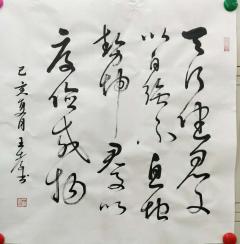 天行健君子
以自強不息地
勢坤君子以
厚德載物
己亥夏月王